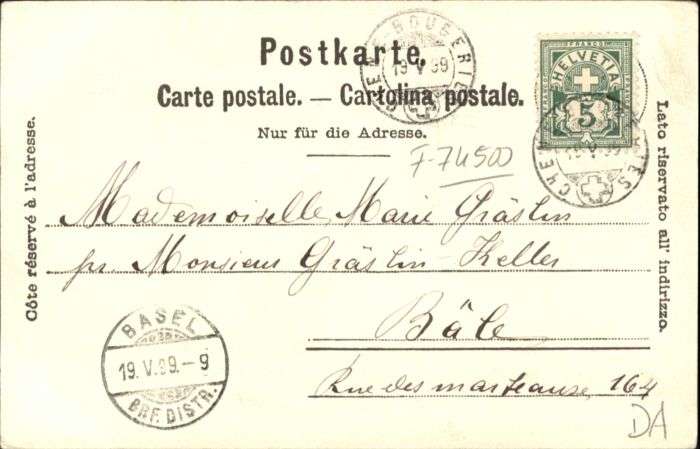 Postkarte.
Carte postale. — Cartolina postale.
Nur für die Adresse.
CHÊNE-BOUGERIES
19.V.99
FRANCO
HELVETIA
5
CHÊNE-BOUGERIES
19.V.99
F-74500
Côte réservé à l'adresse.
Lato riservato all' indirizzo.
Mademoiselle Marie Gräslin
pr. Monsieur Gräslin-Keller
Bâle
Rue des marteaux, 164
BASEL
19.V.99.-9
BRF. DISTR.
DA